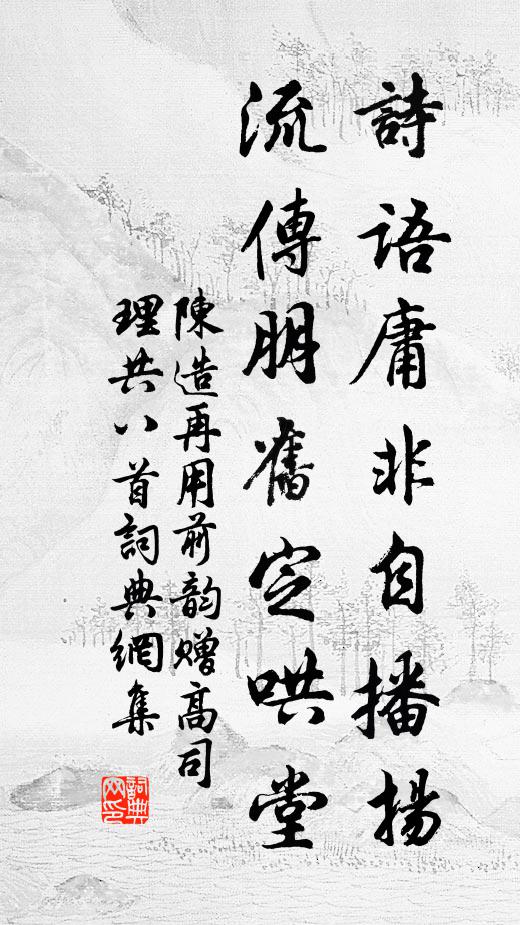 詩語庸非自播揚
流傳朋舊定哄堂
陳造再用前韵贈高司
理共八首詞典網集
詞典
网印